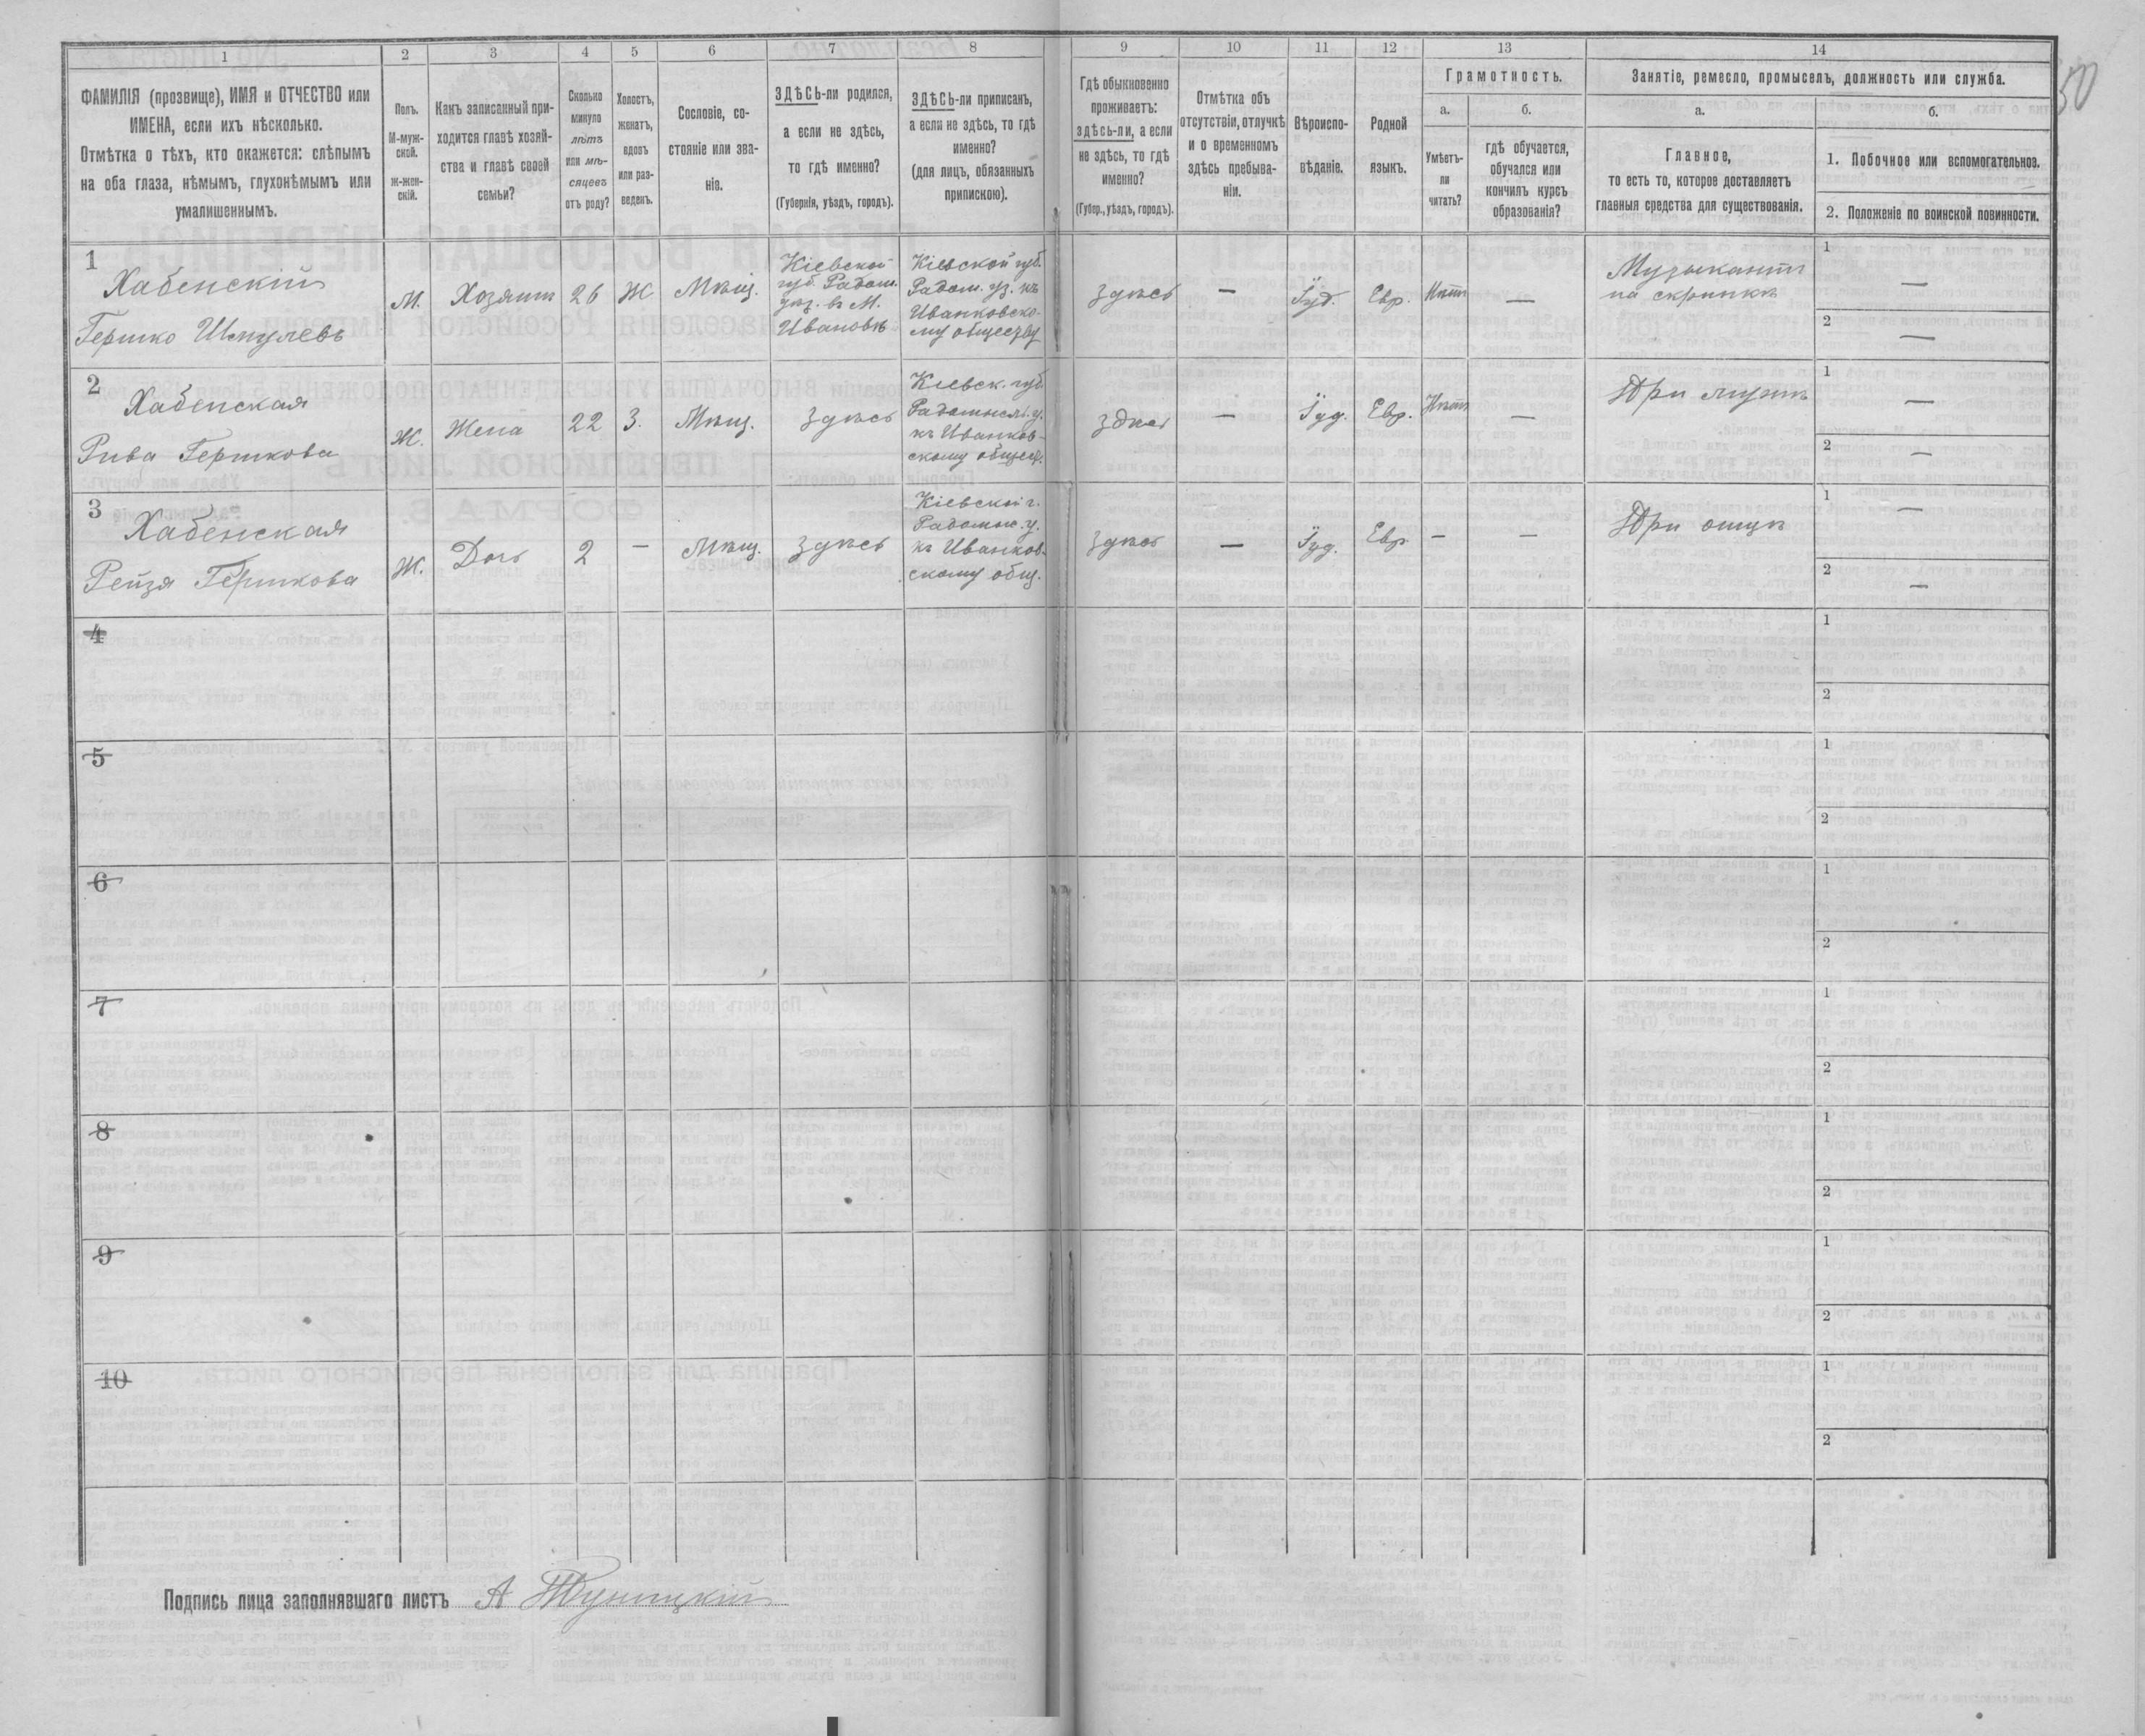 1 2 3 4 5 6 7 8 9 10 11 12 13 14
50
ФАМИЛІЯ (прозвище), ИМЯ и ОТЧЕСТВО или
ИМЕНА, если ихъ нѣсколько.
Отмѣтка о тѣхъ, кто окажется: слѣпымъ
на оба глаза, нѣмымъ, глухонѣмымъ или
умалишеннымъ.
Полъ.
М-муж-
ской.
ж-жен-
скій.
Какъ записанный при-
ходится главѣ хозяй-
ства и главѣ своей
семьи?
Сколько
минуло
лѣтъ
или мѣ-
сяцевъ
отъ роду?
Холостъ,
женатъ,
вдовъ
или раз-
веденъ.
Сословіе, со-
стояніе или зва-
ніе.
ЗДѢСЬ-ли родился,
а если не здѣсь,
то гдѣ именно?
(Губернія, уѣздъ, городъ).
ЗДѢСЬ-ли приписанъ,
а если не здѣсь, то гдѣ
именно?
(для лицъ, обязанныхъ
припискою).
Гдѣ обыкновенно
проживаетъ:
здѣсь-ли, а если
не здѣсь, то гдѣ
именно?
(Губер., уѣздъ, городъ).
Отмѣтка объ
отсутствіи, отлучкѣ
и о временномъ
здѣсь пребыва-
ніи.
Вѣроиспо-
вѣданіе.
Родной
языкъ.
Грамотность.
а.
Умѣетъ-
ли
читать?
б.
гдѣ обучается,
обучался или
кончилъ курсъ
образованія?
Занятіе, ремесло, промыселъ, должность или служба.
а.
Главное,
то есть то, которое доставляетъ
главныя средства для существованія.
б.
1. Побочное или вспомогательное.
2. Положеніе по воинской повинности.
1
Хабенскій
Гершко Шмулевъ
М.
Хозяинъ
26
Ж
Мѣщ.
Кіевской
губ. Радом.
уѣз. въ М.
Ивановѣ
Кіевской губ.
Радом. уз. къ
Иванковско-
му обществу
здѣсь
—
Іуд.
Евр.
Нѣтъ
—
Музыкантъ
на скрипкѣ
1
—
2
—
2
Хабенская
Рива Гершкова
Ж.
Жена
22
З.
Мѣщ.
Здѣсь
Кіевск. губ
Радомысл. у.
къ Иванков-
скому общес.
здѣсь
—
Іуд.
Евр.
Нѣтъ
—
При мужѣ
1
—
2
—
3
Хабенская
Рейзя Гершкова
Ж.
Дочь
2
—
Мѣщ.
здѣсь
Кіевской г.
Радомыс. у.
къ Иванков-
скому общ.
здѣсь
—
Іуд.
Евр.
—
—
При отцѣ
1
—
2
—
4
1
2
5
1
2
6
1
2
7
1
2
8
1
2
9
1
2
10
1
2
Подпись лица заполнявшаго листъ А